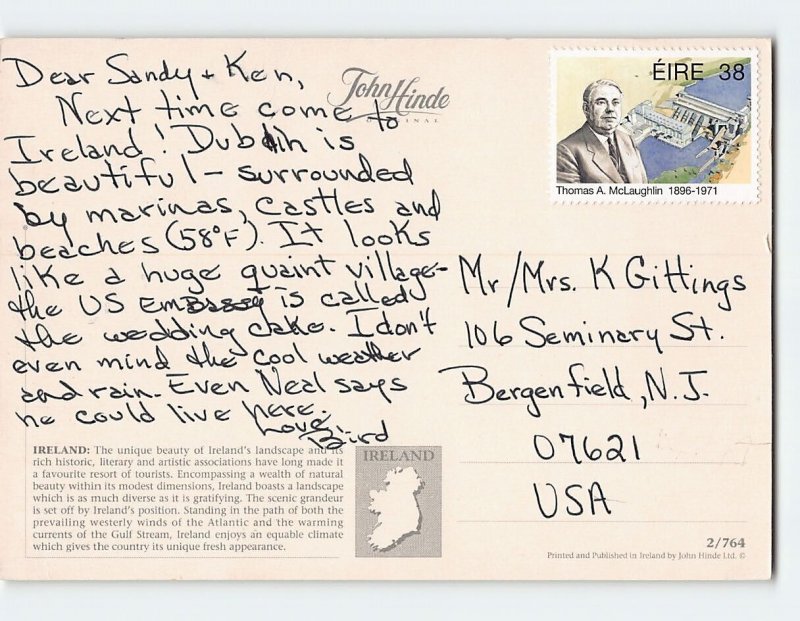 Dear Sandy + Ken,
Next time come to
Ireland! Dublin is
beautiful - surrounded
by marinas, castles and
beaches (58°F). It looks
like a huge quaint village-
the US Embassy is called
the wedding cake. I don't
even mind the cool weather
and rain. Even Neal says
he could live here.
Love,
Bird
John Hinde
ORIGINAL
ÉIRE 38
Thomas A. McLaughlin 1896-1971
Mr/Mrs. K Gittings
106 Seminary St.
Bergenfield, N.J.
07621
USA
IRELAND: The unique beauty of Ireland's landscape and its
rich historic, literary and artistic associations have long made it
a favourite resort of tourists. Encompassing a wealth of natural
beauty within its modest dimensions, Ireland boasts a landscape
which is as much diverse as it is gratifying. The scenic grandeur
is set off by Ireland's position. Standing in the path of both the
prevailing westerly winds of the Atlantic and the warming
currents of the Gulf Stream, Ireland enjoys an equable climate
which gives the country its unique fresh appearance.
IRELAND
2/764
Printed and Published in Ireland by John Hinde Ltd. ©